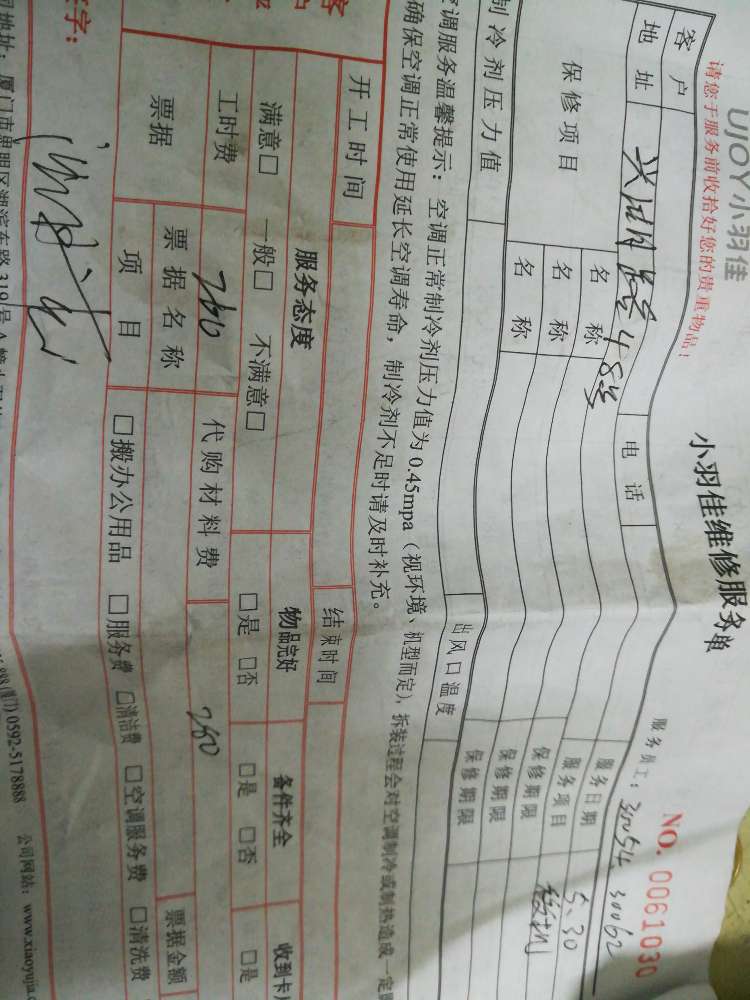 UJOY小羽佳
小羽佳维修服务单
NO. 0061030
请您于服务前收拾好您的贵重物品！
服务员工：30054、30062
客户
电话
服务日期
5.30
地址
48号
服务项目
移机
保修项目
名称
保修期限
名称
保修期限
名称
保修期限
制冷剂压力值
出风口温度
空调服务温馨提示：空调正常制冷剂压力值为0.45mpa（视环境、机型而定），拆装过程会对空调制冷或制热造成一定
确保空调正常使用延长空调寿命，制冷剂不足时请及时补充。
开工时间
结束时间
服务态度
物品完好
备件齐全
收到卡
满意□ 一般□ 不满意□
□是 □否
□是 □否
□是
工时费
260
代购材料费
260
票据
票据名称
票据金额
项目
□搬办公用品 □服务费 □清洁费 □空调服务费 □清洗费
字：
地址：厦门市思明区湖滨东路319号
(厦门) 0592-5178888
公司网站：www.xiaoyujia.